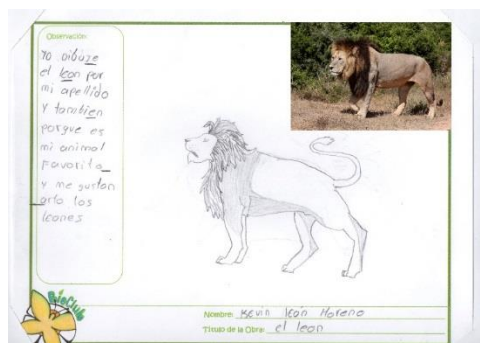 Observación
Yo dibuze
el leon por
mi apellido
y tambien
porque es
mi animal
Favorito
y me gustan
arto los
leones
BioClub
Nombre: Kevin león Moreno
Titulo de la Obra: el leon